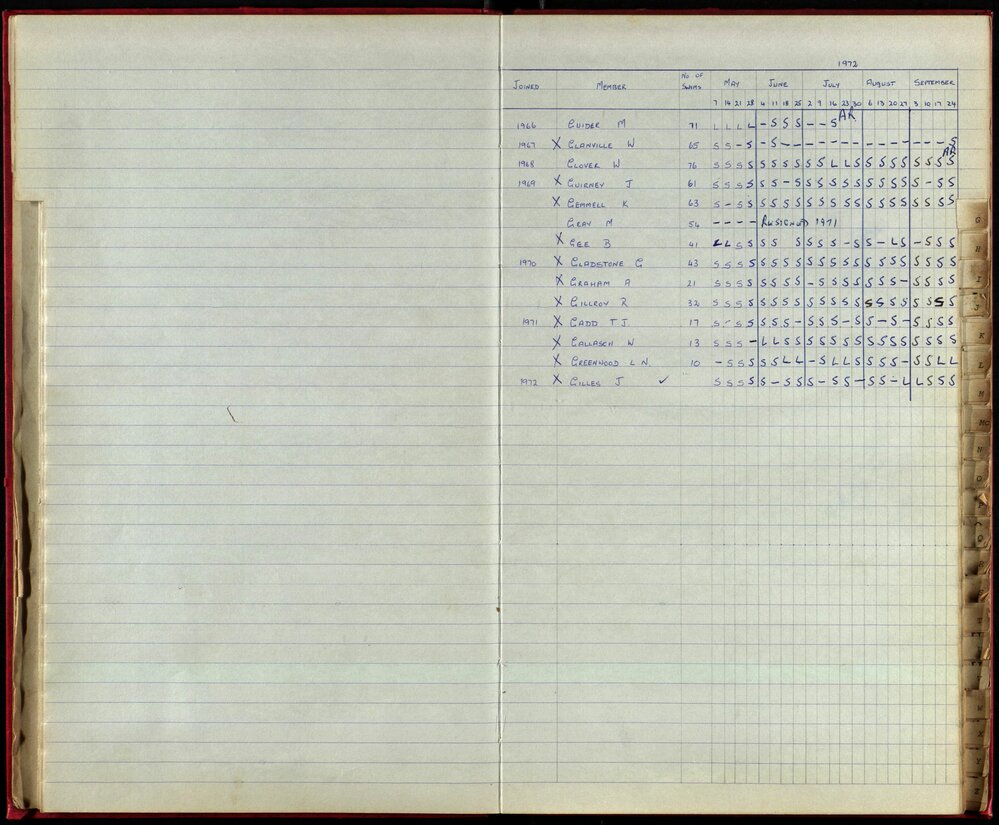 1972
JOINED MEMBER No OF SWIMS MAY JUNE JULY AUGUST SEPTEMBER
7 14 21 28 4 11 18 25 2 9 16 23 30 6 13 20 27 3 10 17 24
1966 GUIDER M 71 L L L L - S S S - - S AR
1967 X GLANVILLE W 65 S S - S - S - - - - - - - - - - - - - - S
AR
1968 GLOVER W 76 S S S S S S S S S S L L S S S S S S S S S
1969 X GUIRNEY J 61 S S S S S S - S S S S S S S S S S S - S S
X GEMMELL K 63 S - S S S S S S S S S S S S S S S S S S S
GRAY M 54 - - - - RESIGNED 1971
X GEE B 41 L L S S S S S S S S - S S - L S - S S S
1970 X GLADSTONE G 43 S S S S S S S S S S S S S S S S S S S S S
X GRAHAM A 21 S S S S S S S S - S S S S S S S - S S S S
X GILLROY R 32 S S S S S S S S S S S S S S S S S S S S S
1971 X GADD T.J. 17 S - S S S S S - S S S - S S - S - S S S S
X GALLASCH W 13 S S S - L L S S S S S S S S S S S S S S S
X GREENWOOD L.N. 10 - S S S S S L L - S L L S S S S - S S L L
1972 X GILLES J ✓ S S S S S - S S S - S S - S S - L L S S S
G
H
I
J
K
L
M
Mc
N
O
P
Q
R
W
X
Y
Z